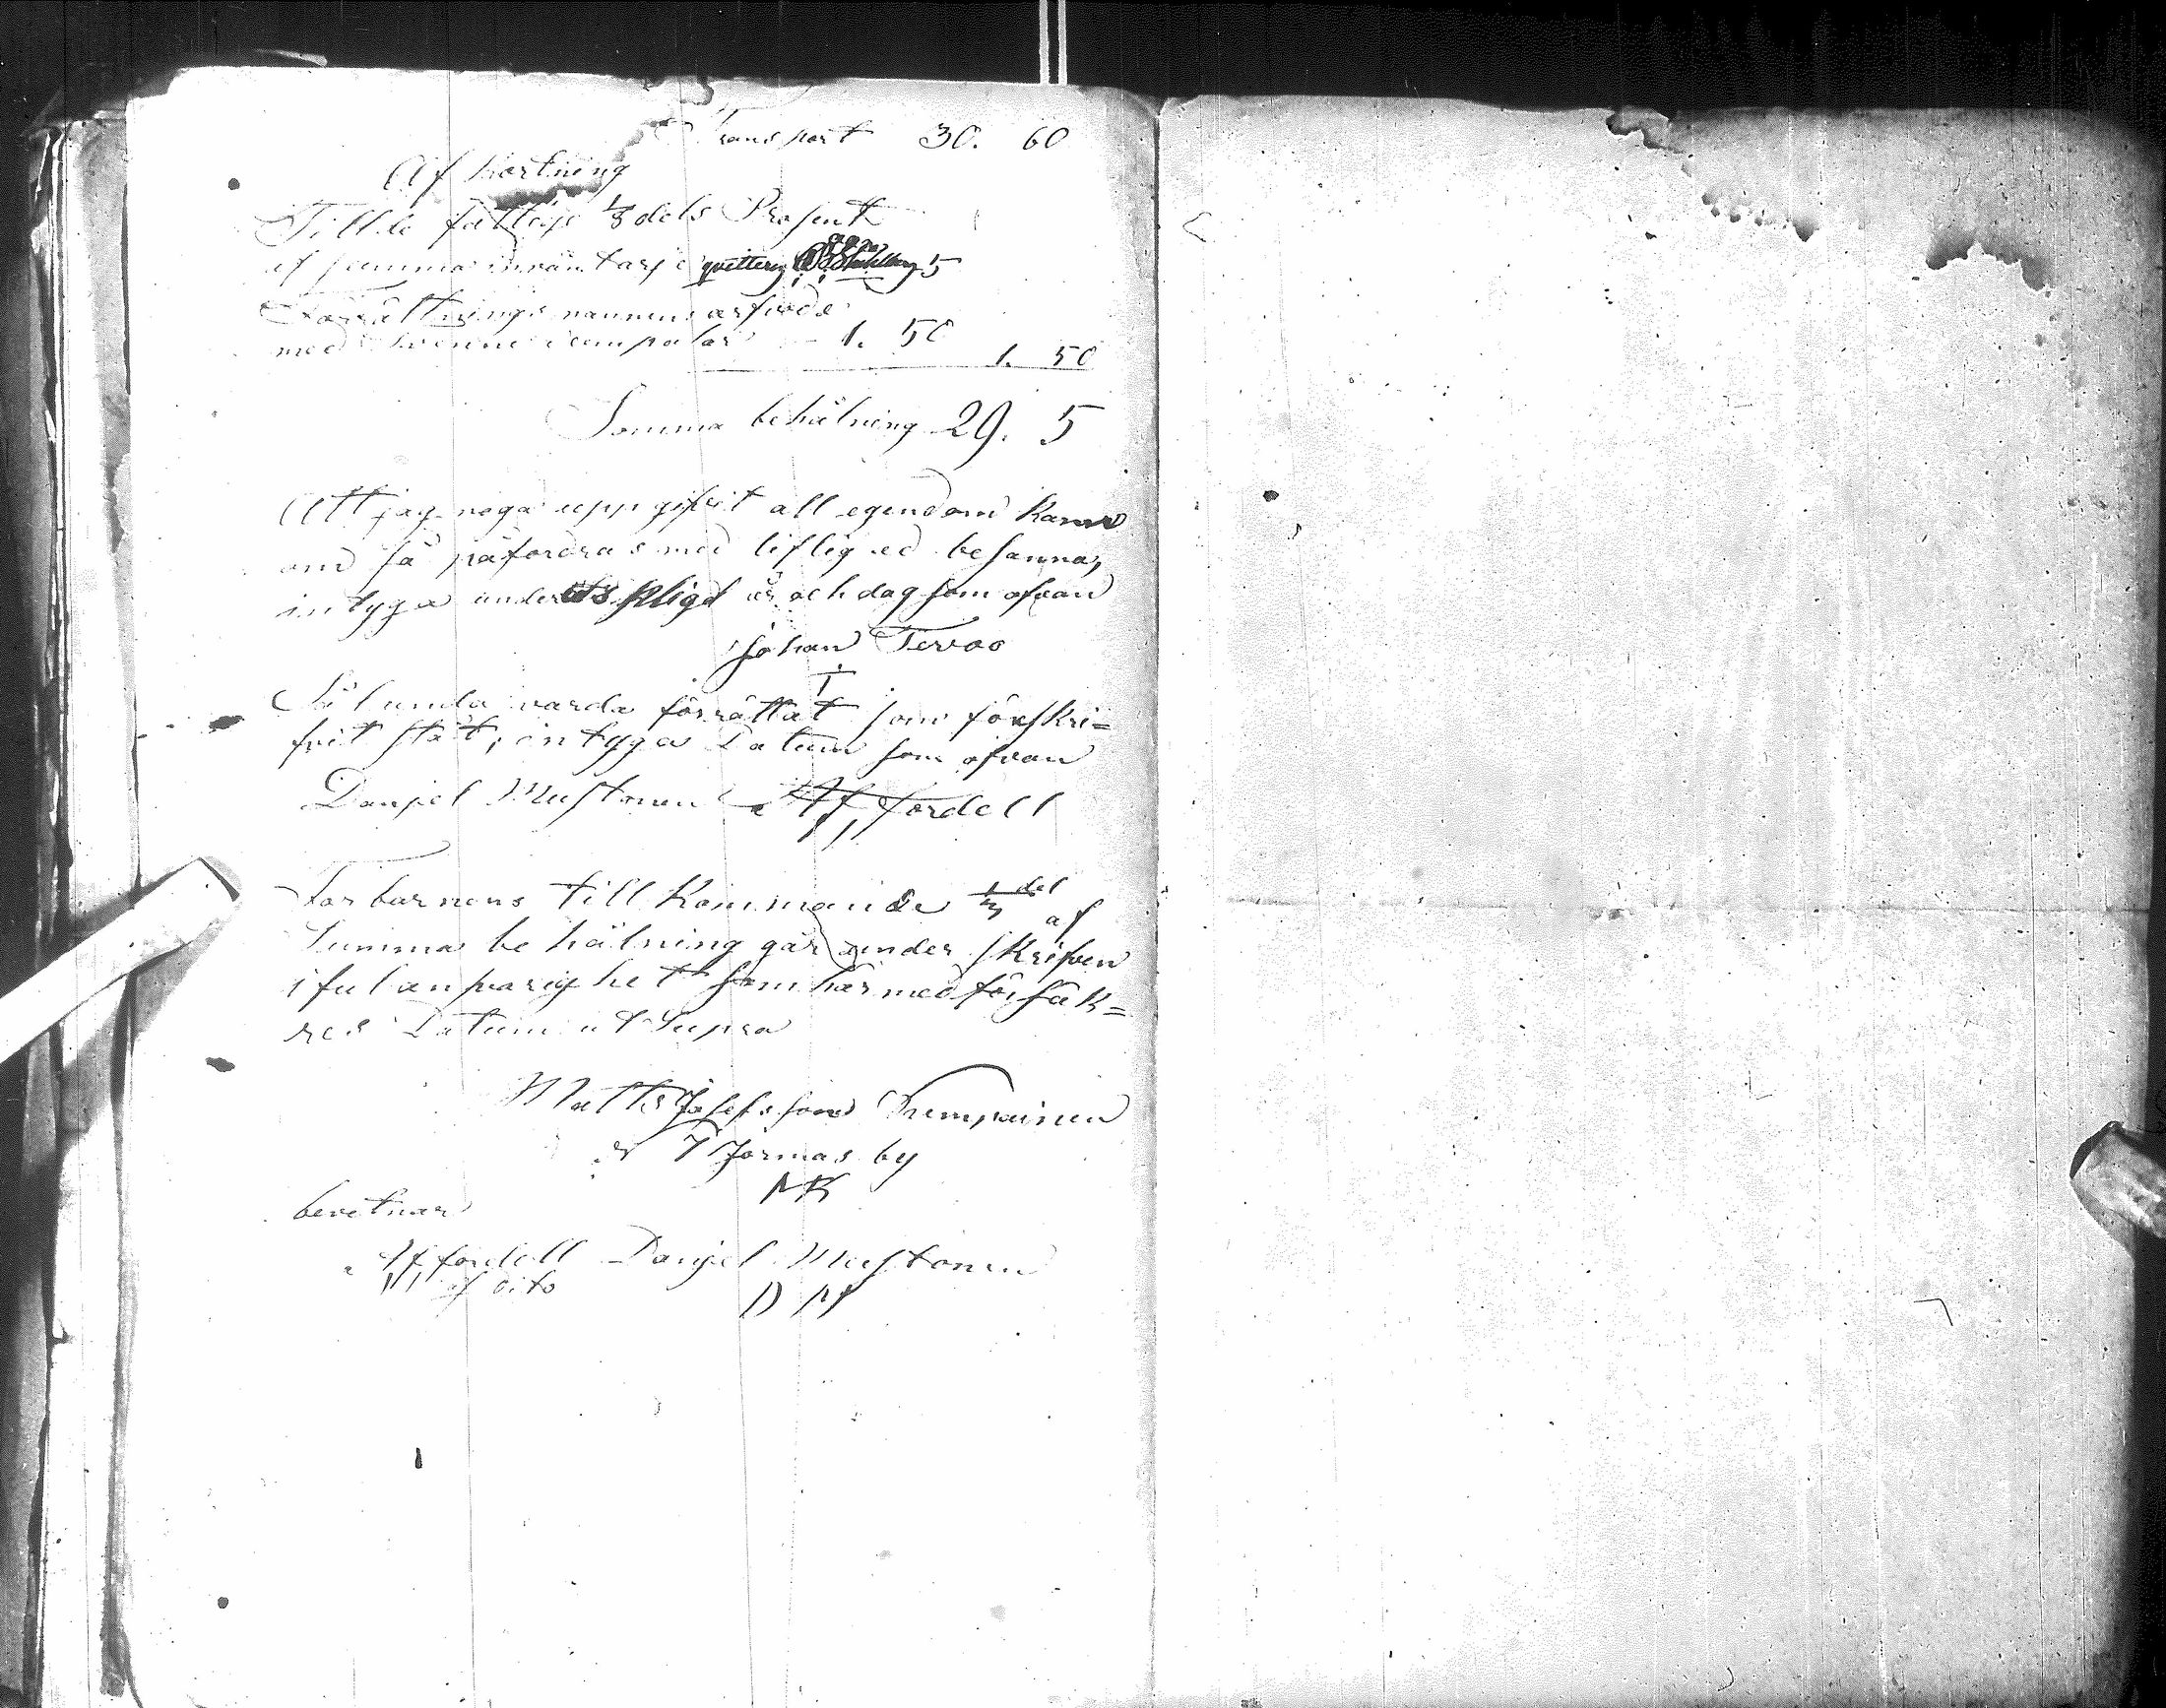 Transport 30. 60
Afkortning
Till de fattige 1/8 dels Prosent
af samma inväntarje qvitteras Ståhlberg 5
Förrättnings mannens arfvode
med twenne exemplar - 1. 50
1. 50
Somma behålning 29. 5
Att jag noga uppgifvit all egendom kan
om så påfordras med liflig ed besanna,
intyga under edspligt år och dag som ofvan
Johan Tervoo
Sålunda warda förrättat som förskri=
fvit står, intyga Datum som ofvan
Danjel Mustonen Af, fordell
För barnens till kommande 1/3 del af
Summa behålning går under skrifven
i ful ansvarighet som här med försäk=
res Datum ut Supra
Matts Josefsson Kumpainen
Jormas by
MK
bevitnar
Af fordell Danjel Mustonen
af dito DM